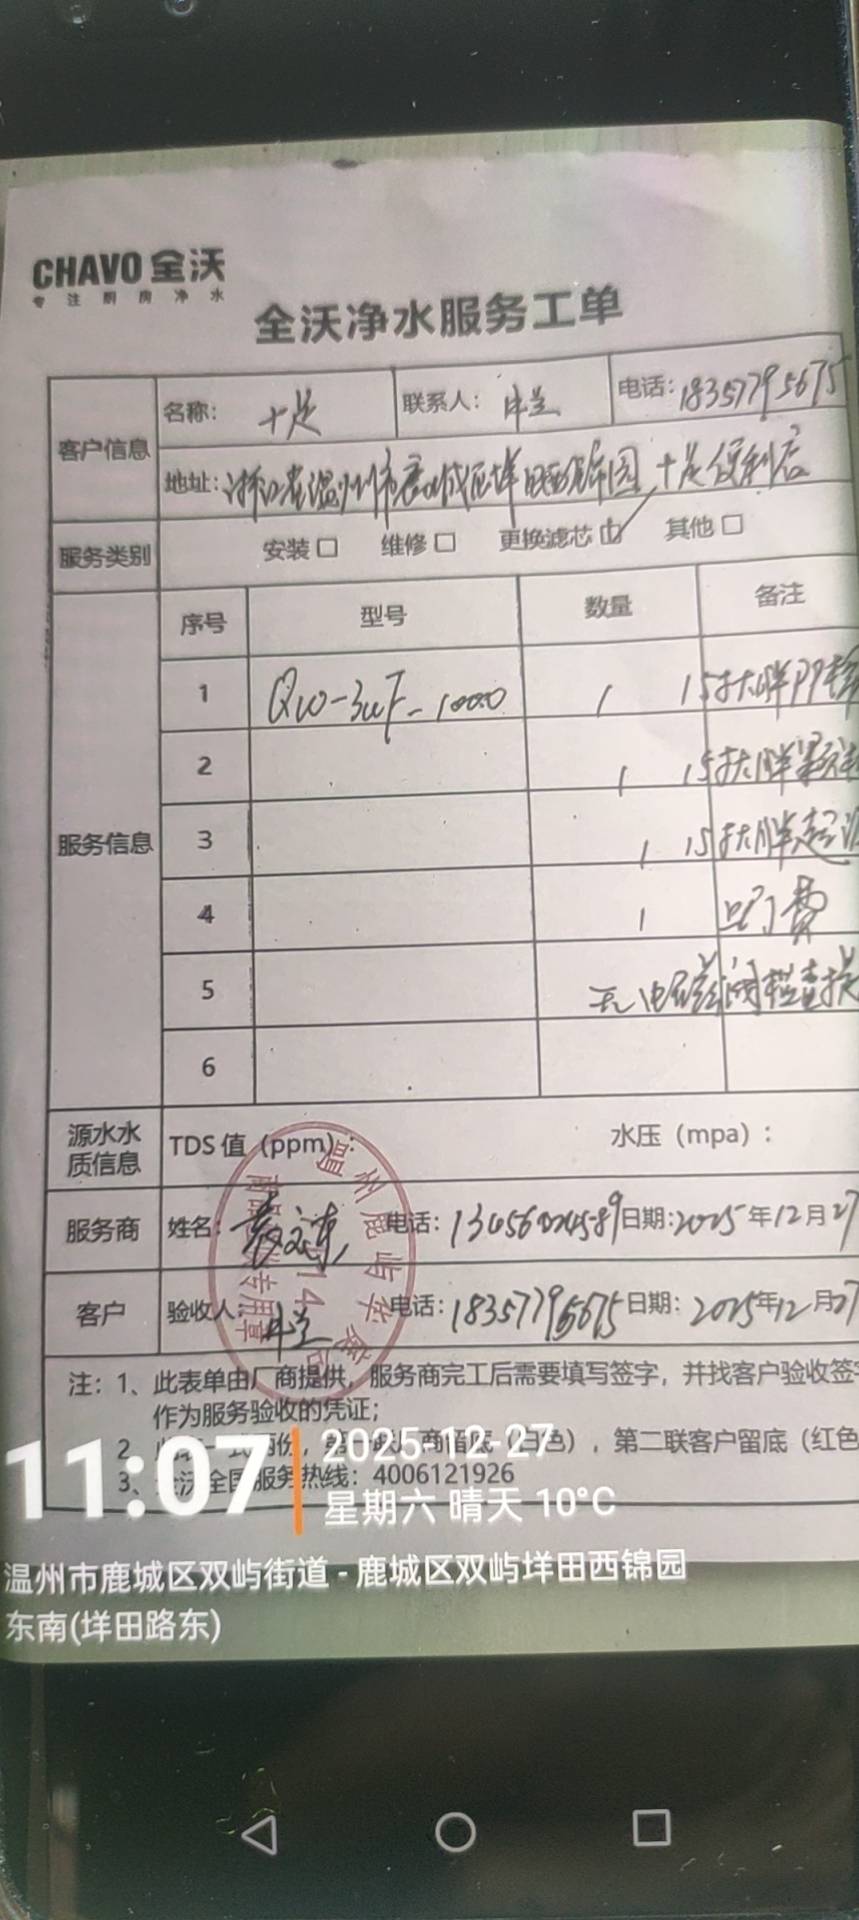 CHAVO 全沃
专注厨房净水
全沃净水服务工单
客户信息 名称: 十足 联系人: 电话: 18357795675
地址: 浙江省温州市鹿城区垟田西锦园十足便利店
服务类别 安装□ 维修□ 更换滤芯□ 其他□
序号 型号 数量 备注
服务信息
1 1 15寸大胖PP棉
2 1 15寸大胖颗
3 1 15寸大胖
4 1 上门费
5 无电磁阀检查
6
源水水质信息 TDS 值 (ppm): 水压 (mpa) :
服务商 姓名: 电话: 日期: 2025年12月27
客户 验收人: 电话: 18357795675 日期: 2025年12月27
注: 1、此表单由厂商提供，服务商完工后需要填写签字，并找客户验收签
作为服务验收的凭证;
2 商留底（白色）, 第二联客户留底（红色
3、全沃全国服务热线: 4006121926
温州鹿屿
专用章
11:07 2025-12-27
星期六 晴天 10°C
温州市鹿城区双屿街道 - 鹿城区双屿垟田西锦园
东南(垟田路东)